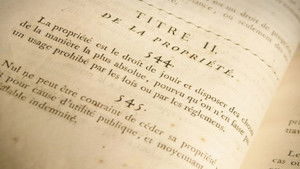 TITRE II.
DE LA PROPRIÉTÉ.
544
La propriété est le droit de jouir et disposer des choses
de la manière la plus absolue, pourvu qu'on n'en fasse pas
un usage prohibé par les lois ou par les réglemens.
545.
Nul ne peut être contraint de céder sa propriété
pour cause d'utilité publique, et moyennant
indemnité.